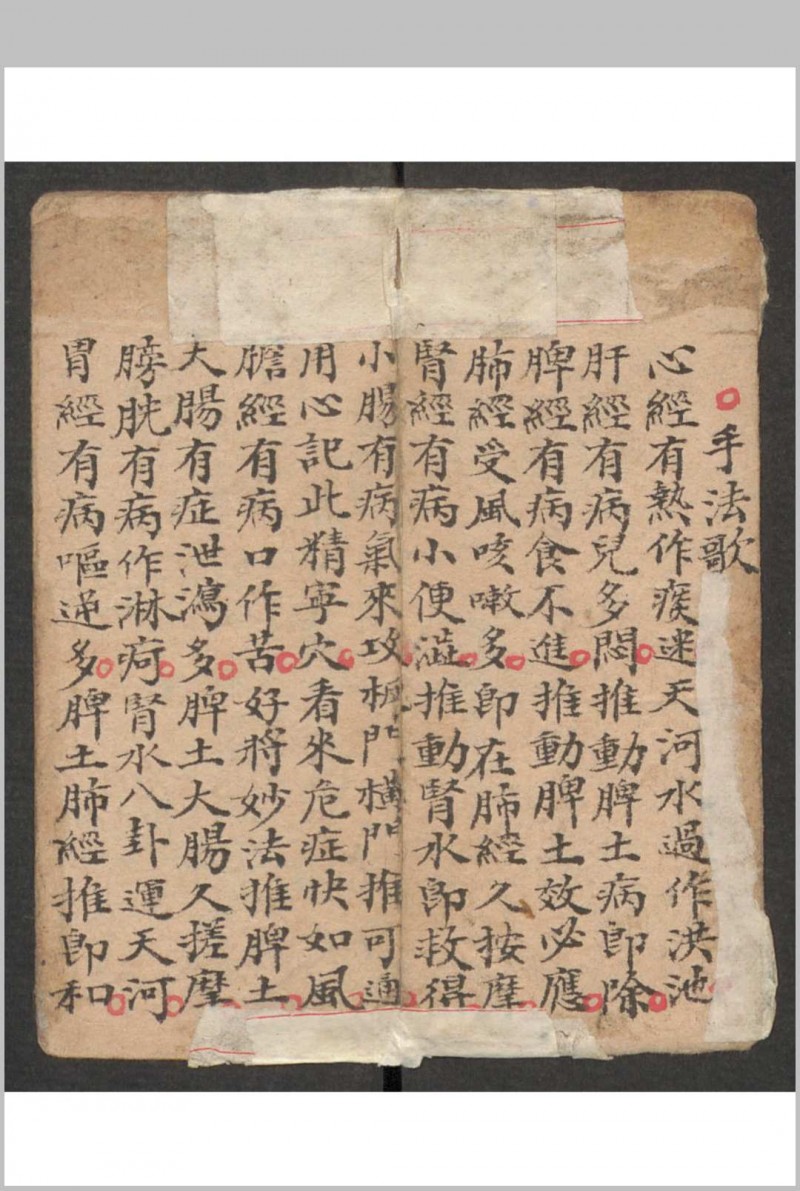 手法歌
心經有熱作痰迷天河水過作洪池
肝經有病兒多悶推動脾土病即除
脾經有病食不進推動脾土效必應
肺經受風咳嗽多即在肺經久按摩
腎經有病小便澁推動腎水即救得
小腸有病氣來攻板門横門推可通
用心記此精寧穴看來危症快如風
膽經有病口作苦好將妙法推脾土
大腸有症泄瀉多脾土大腸久搓摩
膀胱有病作淋疴腎水八卦運天河
胃經有病嘔逆多脾土肺經推即和